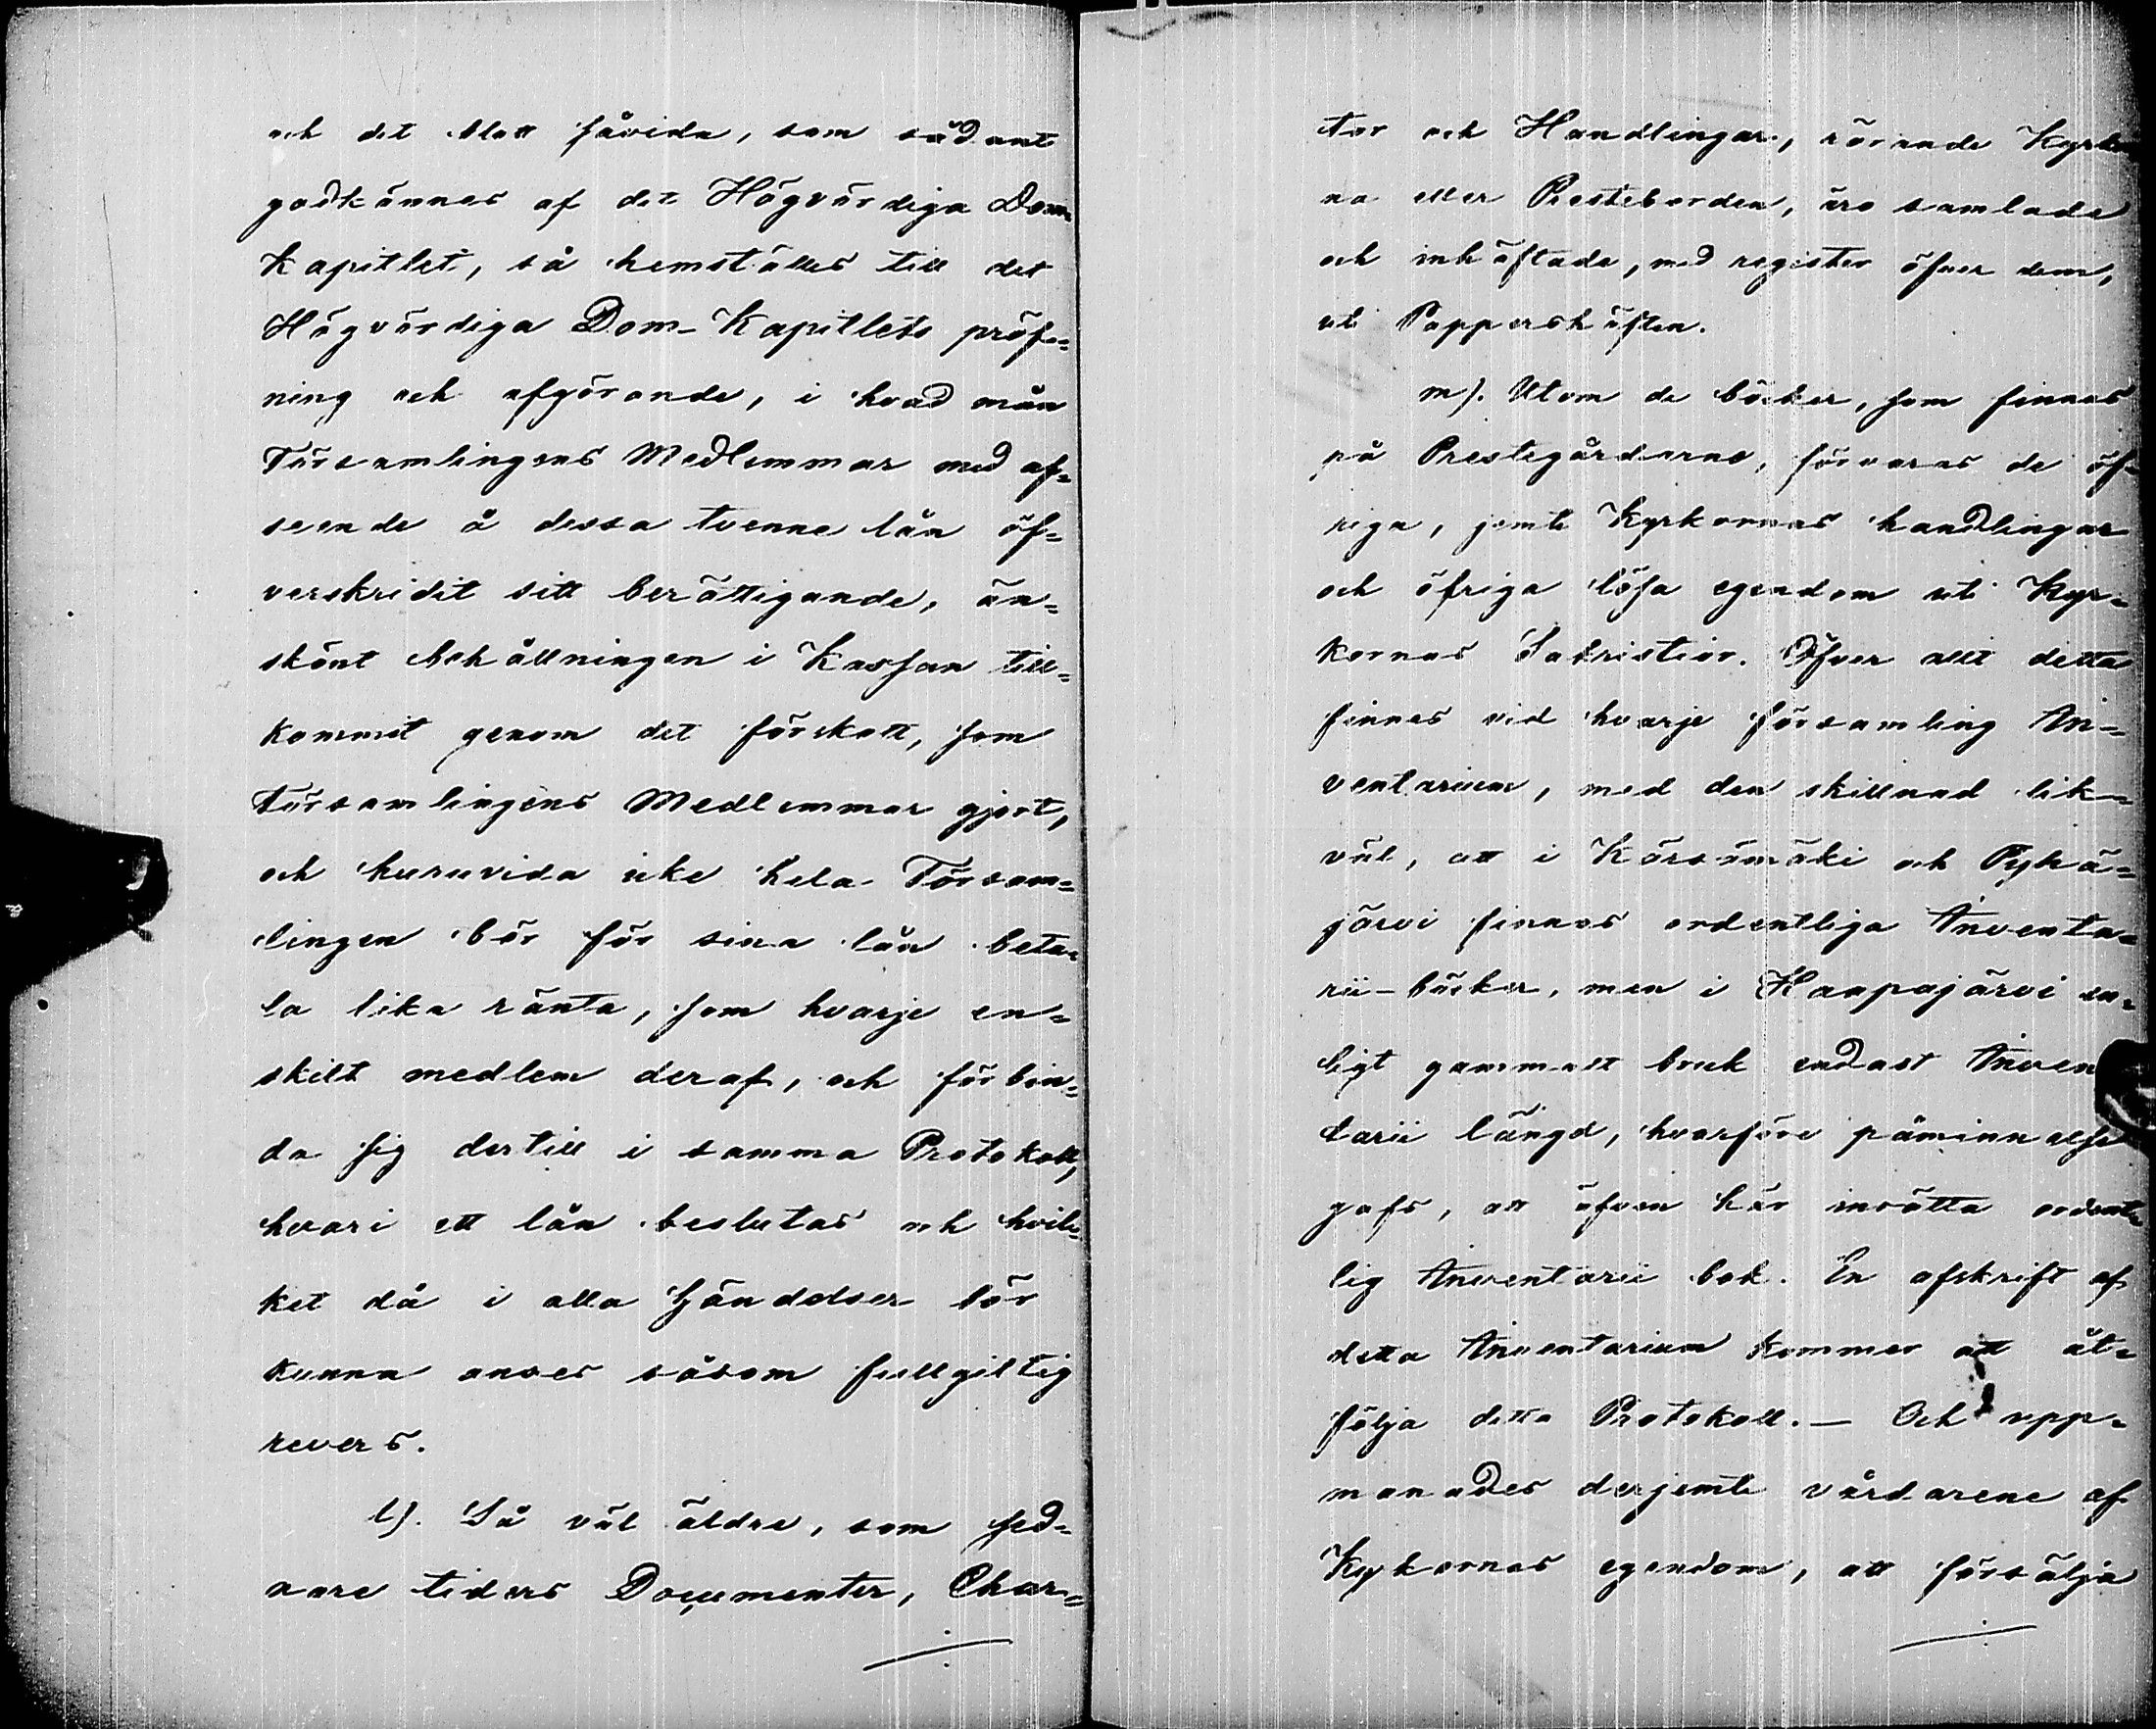 och det blott såvida, som sådant
godkännes af det Högvördiga Dom
Kapitlet, så hemställes till det
Högvördiga Dom-Kapitlets pröf=
ning och afgörande, i hvad mån
Församlingens Medlemmar med af=
seende å dessa tvenne lån öf=
verskridit sitt berättigande, än=
skönt behållningen i Kassan till=
kommit genom det förskott, som
Församlingens Medlemmar gjort,
och huruvida icke hela Försam=
lingen bör för sina lån beta=
la lika ränta, som hvarje en=
skilt medlem deraf, och förbin=
da sig dertill i samma Protokoll,
hvari ett lån beslutas och hvil=
ket då i alla händelser bör
kunna anses såsom fullgiltig
revers.
l). Så väl äldre, som sed=
nare tiders Documenter, Char=
tor och Handlingar, rörande Kyrkor
na eller Prestborden, äro samlade
och inhäftade, med register öfver dem,
uti Pappershäften.
m). Utom de böcker, som finnas
på Prestegårdarne, förvaras de öf=
riga, jemte Kyrkornas handlingar
och öfriga lösa egendom uti Kyr=
kornas Sakristior. Öfver allt detta
finnes vid hvarje församling In=
ventarium, med den skillnad lik=
väl, att i Kärsämäki och Pyhä=
järvi finnes ordentliga Inventa=
rii-böcker, men i Haapajärvi en=
ligt gammalt bruk endast Inven
tarii längd, hvarföre påminnelse
gafs, att äfven här inrätta ordent=
lig Inventarii bok. En afskrift af
detta Inventarium kommer att åt=
följa detta Protokoll. — Och upp=
manades derjemte vårdarene af
Kyrkornas egendom, att försälja